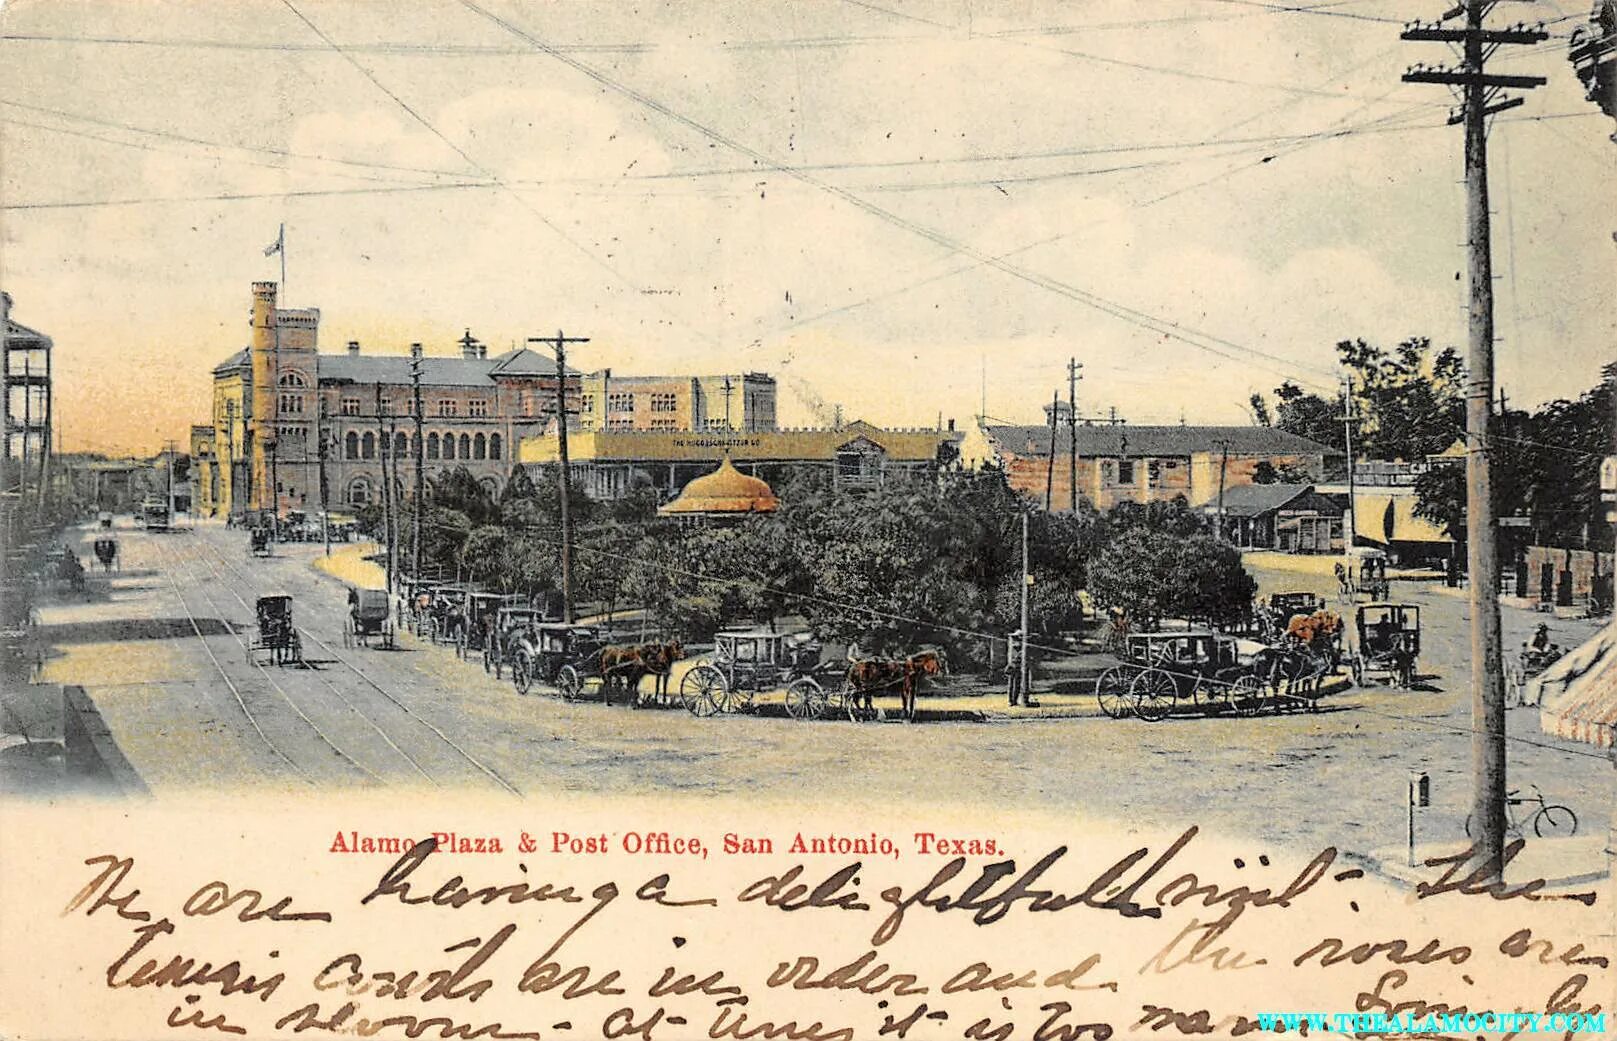 THE HUGO & SCHMELTZER CO
Alamo Plaza & Post Office, San Antonio, Texas.
We are having a delightful visit - The
tennis courts are in order and the roses are
in bloom - at times it is too warm
WWW.THEALAMOCITY.COM